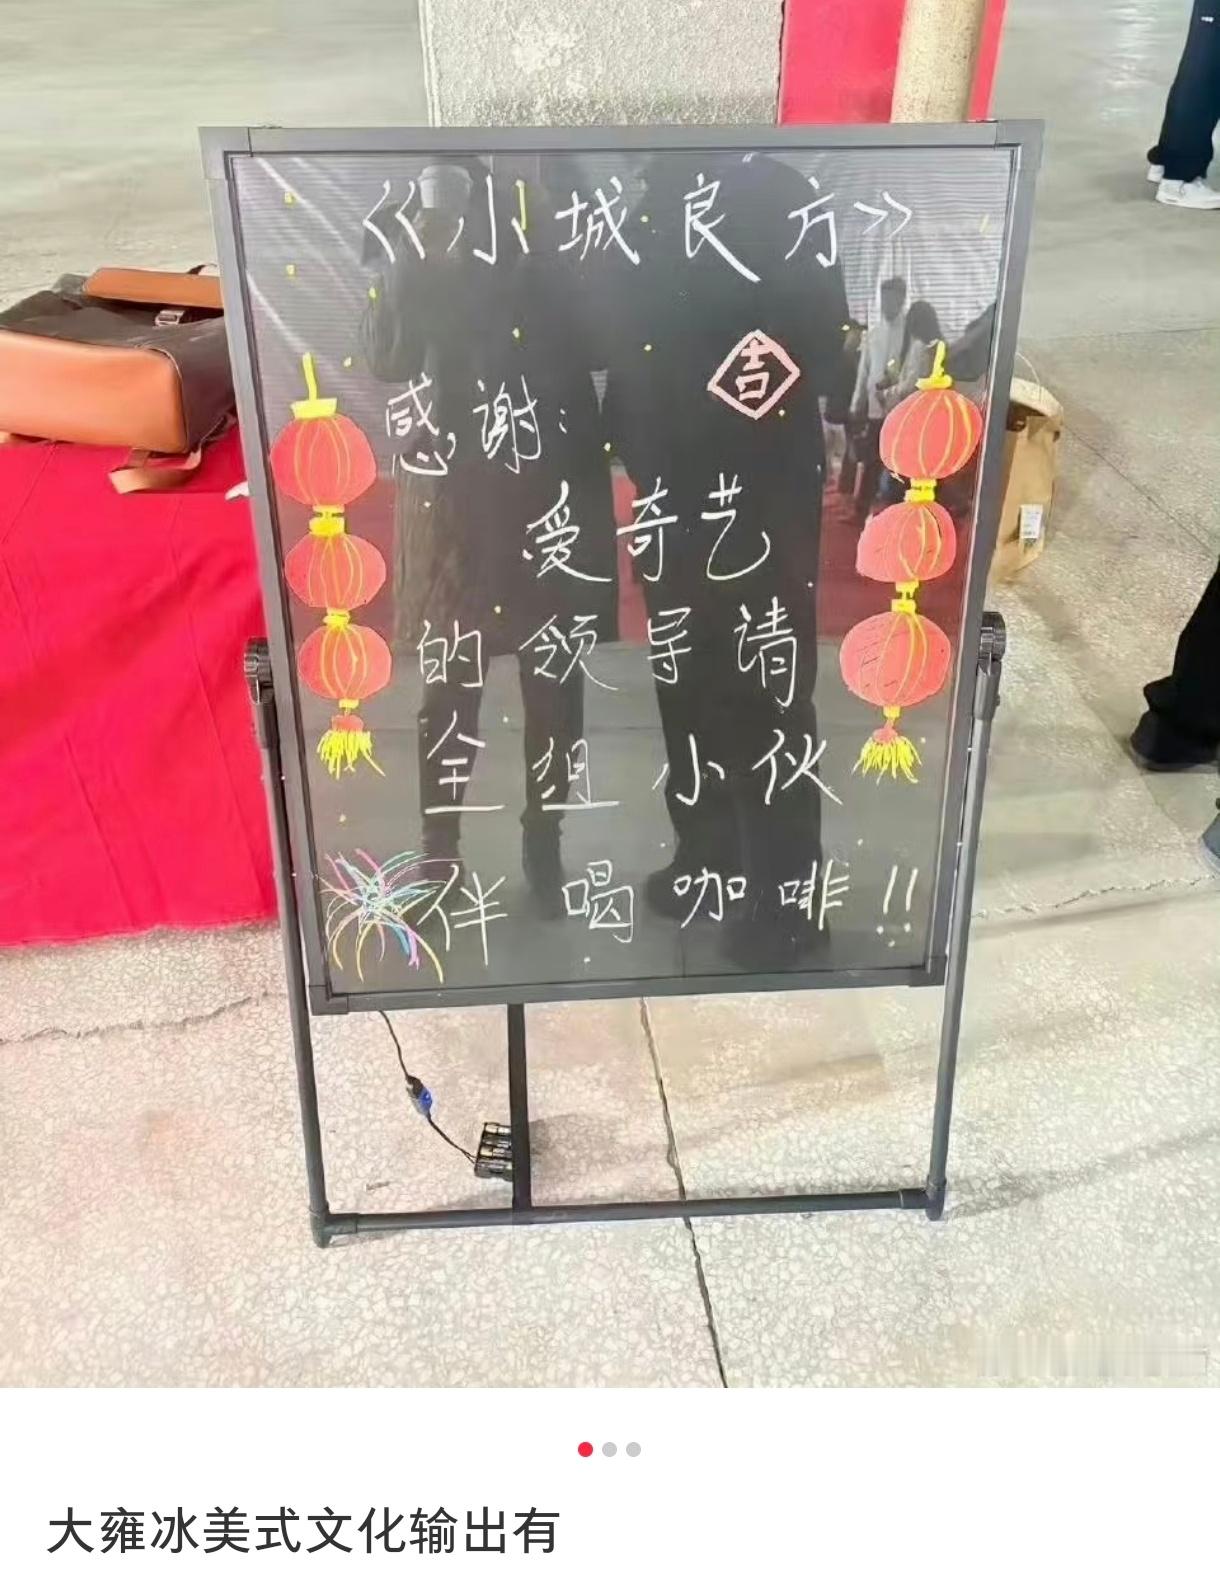 《小城良方》
吉
感谢:
爱奇艺
的领导请
全组小伙
伴喝咖啡!!
大雍冰美式文化输出有